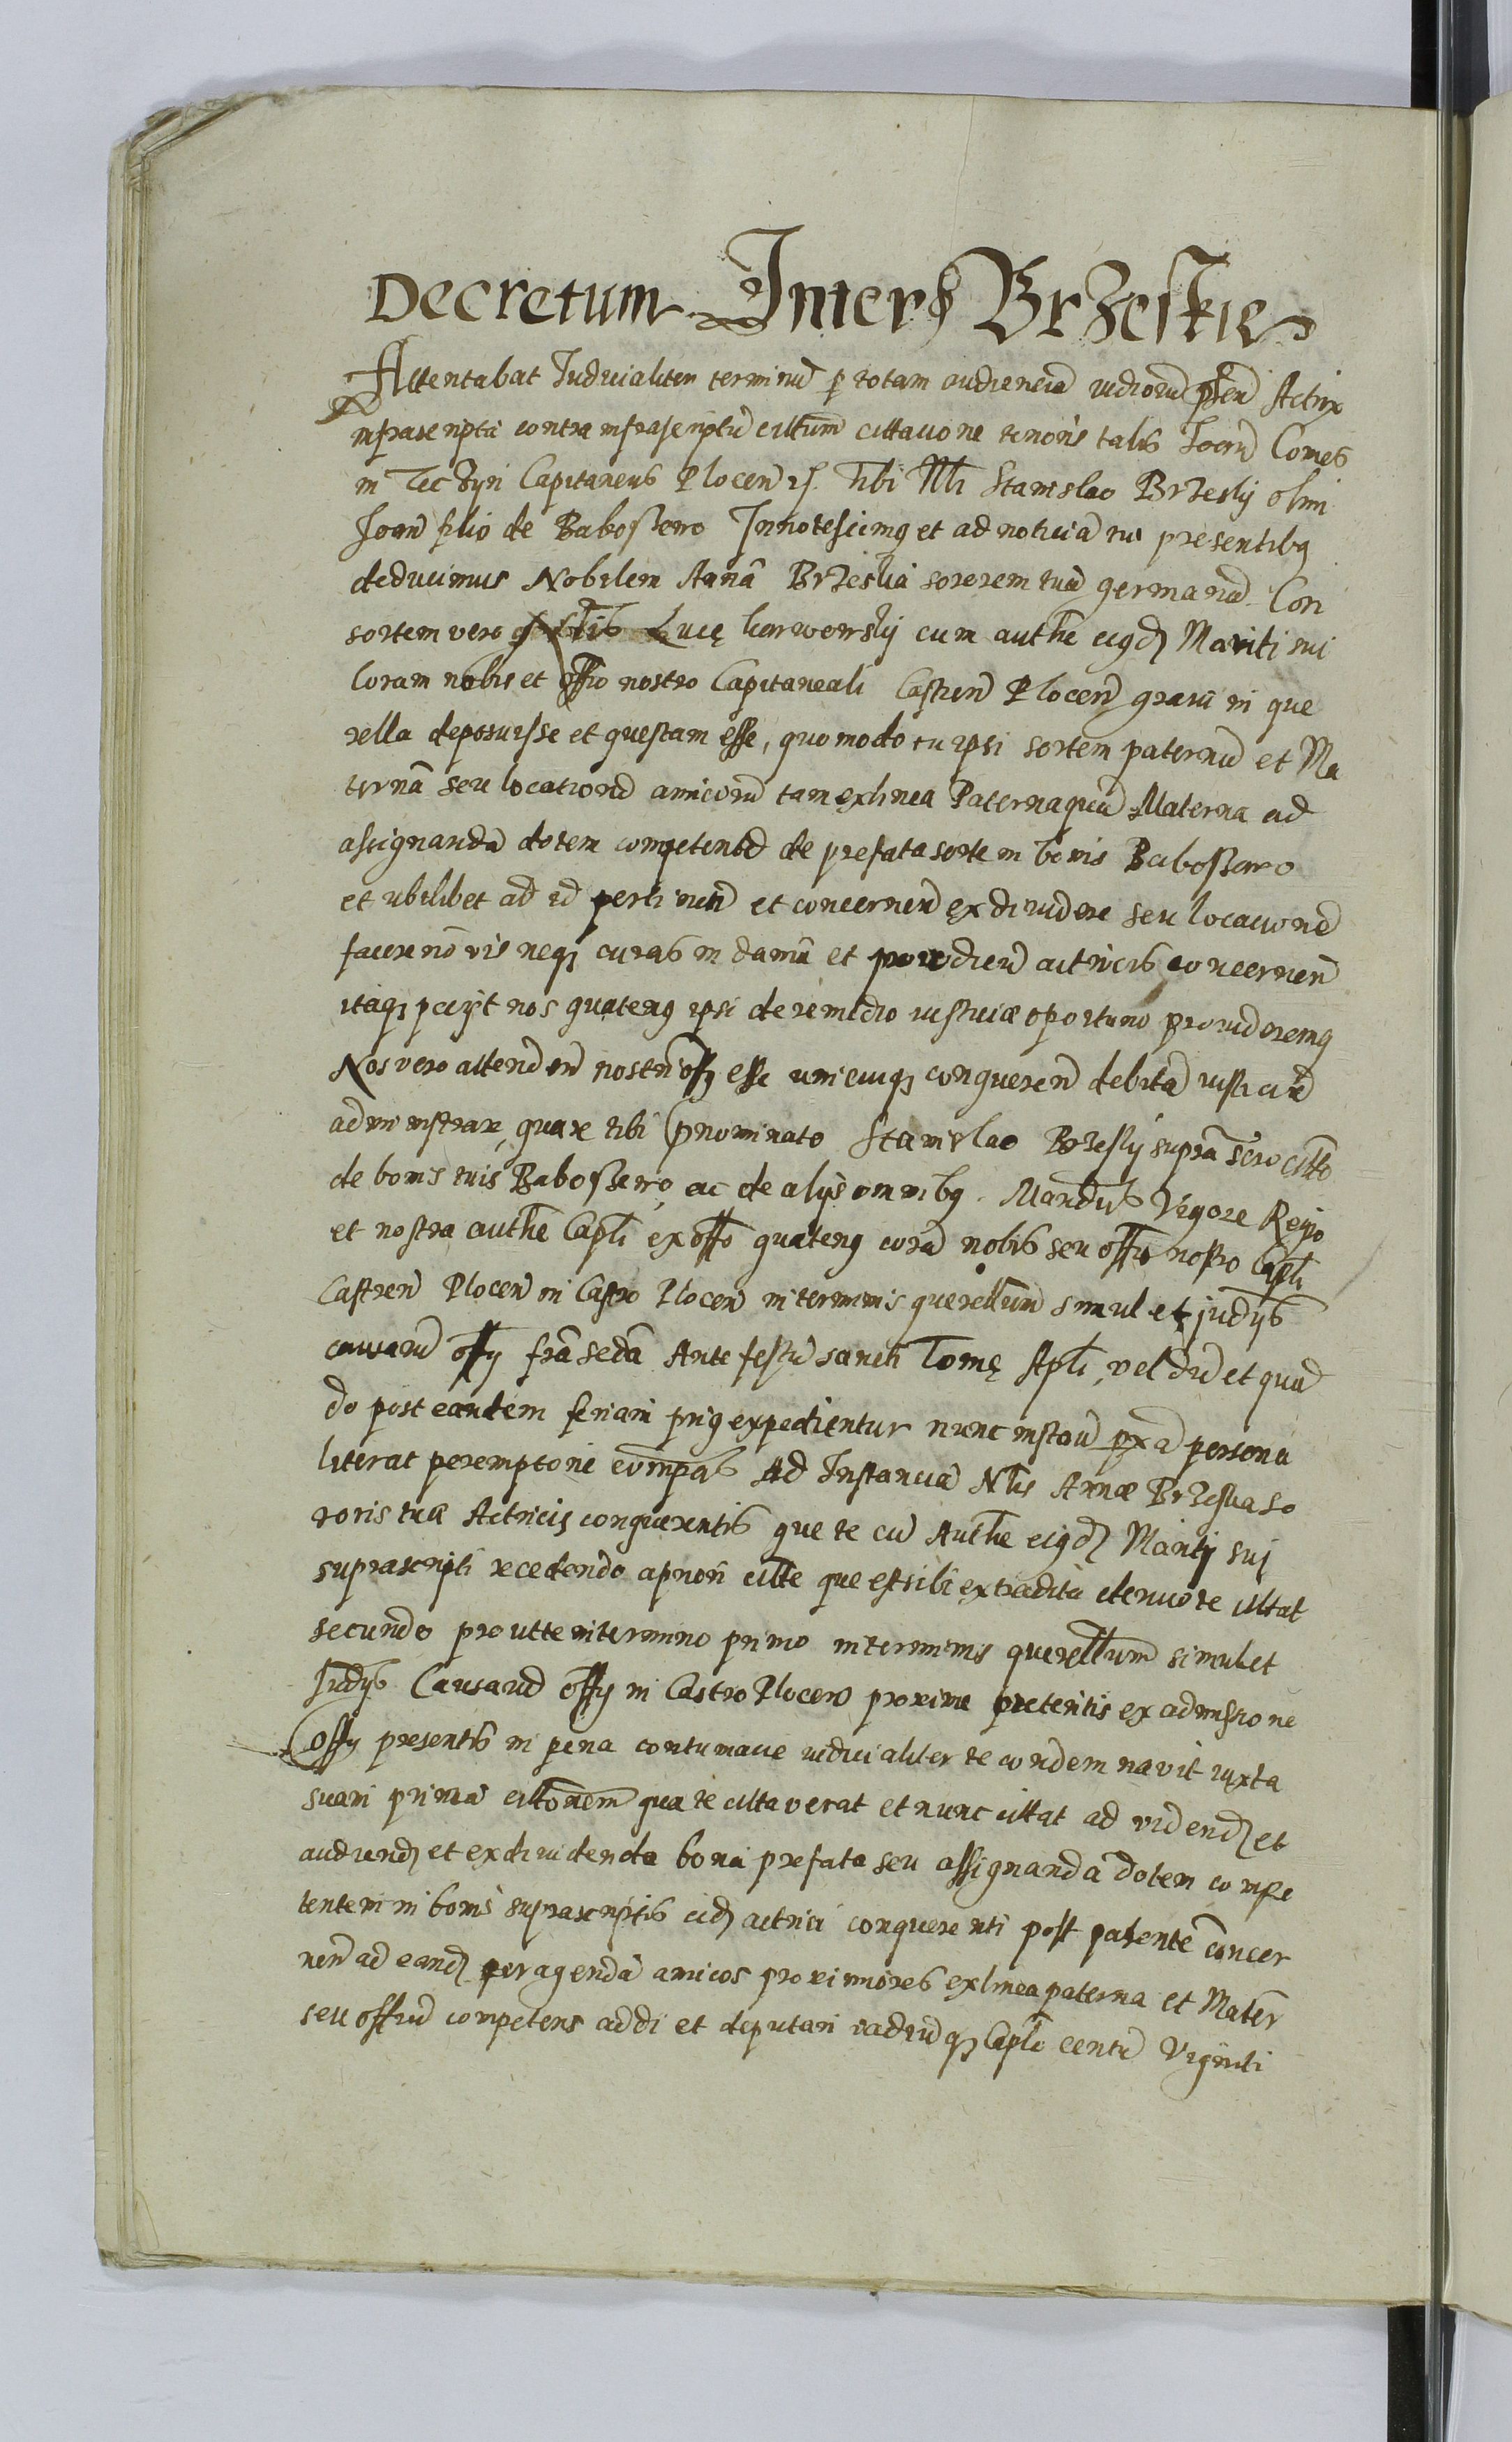 Decretum Inter Brzeskie
Attentabat Iudicialiter terminũ p totam audienciã iudiciorũ pñ Actrix
infrascripta contra infrascriptũ cittum cittacione tenoris talis Joãn Comes
in Teczyn Capitaneus Plocen Tibi Nbli Stanislao Brzesky olim
Joãn filio de Baboszewo Innotescimq et ad noticiã tui presentibq
deducimus Nobilem Annã Brzeskã sororem tuã germanã Con
sortem vero Nbtis Lucę karwowsky cum authe eiqd Mariti sui
Coram nobis et offio nostro Capitaneali Castren Plocen graui in que
rella deposuisse et questam esse, quomodo tu ipsi sortem paternã et Ma
ternã seu locationẽ amicorũ tam ex linea Paterna quã Materna ad
assignandã dotem competentẽ de prefata sorte in bonis Baboszewo
et ubilibet ad id pertinen et concernen exdiuidere seu locacionẽ
facere nõ vis neqz curas in damũ et preiudiciũ actricis concernen
itaqz peijt nos quatenq ipsi de remedio iusticiæ oportuno prouideremq
Nos vero attenden nostri offij esse unicuiqz conqueren debitã iusticiã
administrare, quare tibi pnominato Stanislao Brzesky supra scro citto
de bonis tuis Baboszewo, ac de alijs omnibq. Mandamus Vigore Regio
et nostra authe Capli ex offo quatenq corã nobis seu offo nostro Capli
Castren Plocen in Castro Plocen in terminis querellarum simul et judijs
causarũ offij fria secda Ante festũ sancti Tomę Apli, vel dũ et quã
do post eandem feriam priq expedientur nunc instañ pxã persona
literat peremptorie compas Ad Instanciã Nblis Annæ Brzeska so
roris tuæ Actricis conquerentis que te cũ Authe eiqd Mariti suj
suprascripti recedendo a priori citte que est sibi extradita denuo te cittat
secundo prout te in termino primo in terminis querellarum simul et
Judijs Causarũ offij in Castro Plocen proxime preteritis ex admissione
Offij presentis in pena contumacie iudicialiter te condemnavit iuxta
suam primã cittonem qua te cittaverat et nunc cittat ad videnẟ et
audienẟ et exdiuidenda bona prefata seu assignandã dotem compe
tentem in bonis suprascriptis eidẟ actrici conquerenti post parentẽ concer
nen ad eandẟ peragendã amicos proximiores ex linea paterna et Mater
seu offium competens addi et deputari vadiũqz Caple centũ Viginti